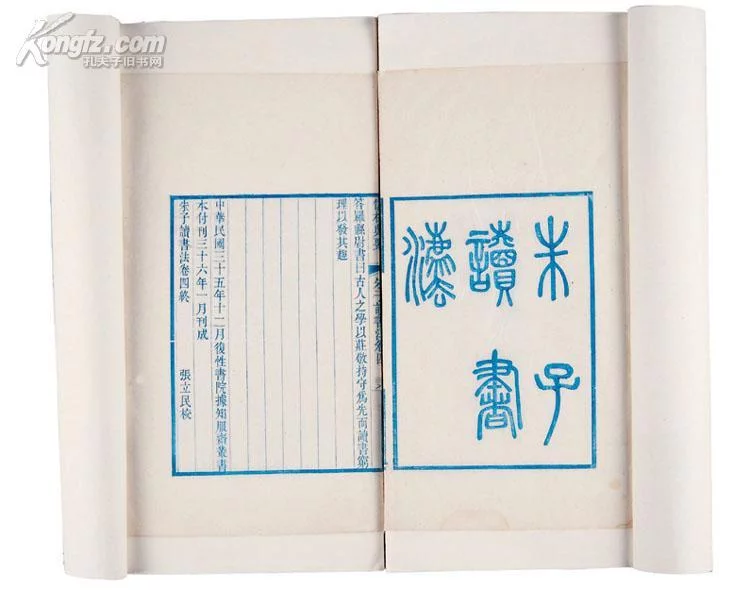 Kongfz.com
孔夫子旧书网
朱子
讀書
灋
答羅縣尉書曰古人之學以莊敬持守爲先而讀書窮
理以發其趣
中華民國三十五年十二月復性書院據知服齋叢書
本付刊三十六年一月刊成
朱子讀書法卷四終
張立民校